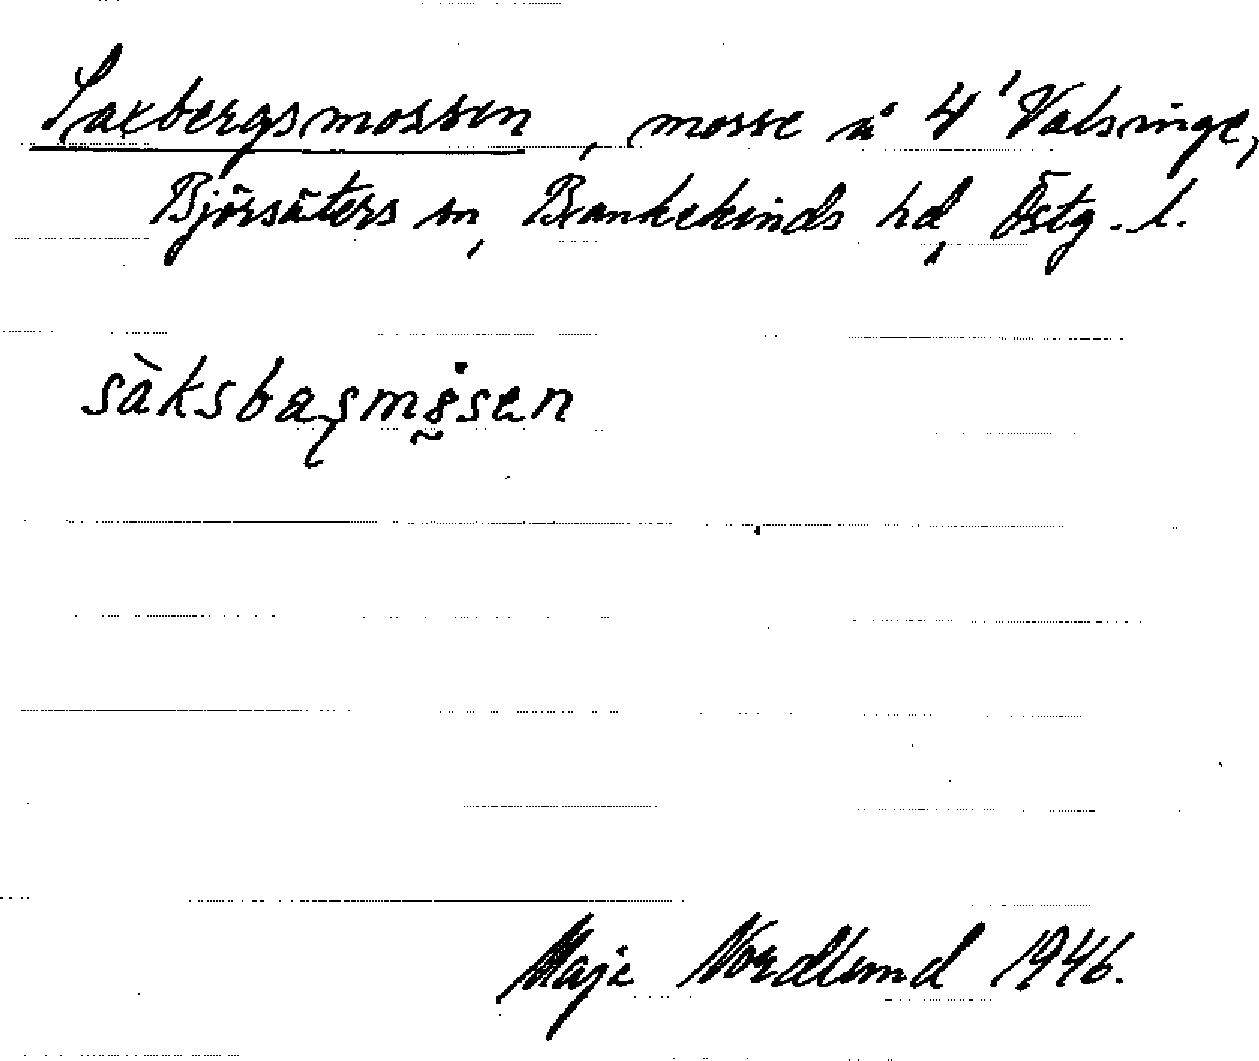 Saxbergsmossen, mosse å 4' Valsinge,
Björsäters sn, Bankekinds hd, Östg. l.
Maje Nordlund 1946.